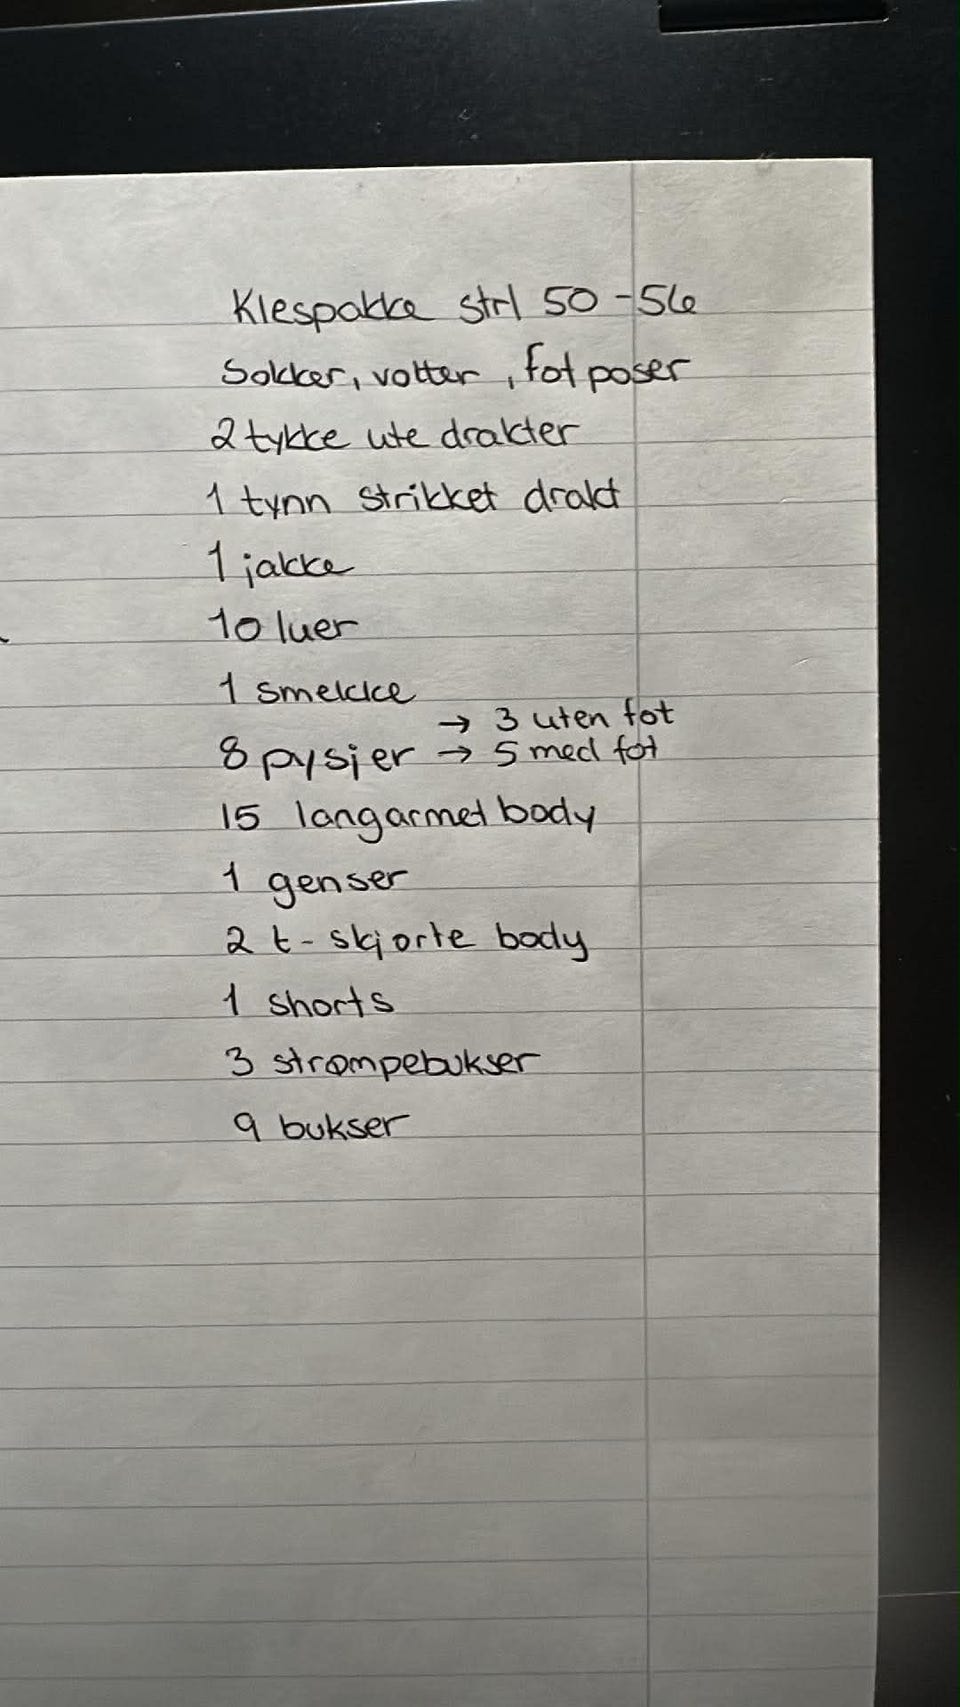 Klespakke strl 50-56
Sokker, votter, fot poser
2 tykke ute drakter
1 tynn strikket drakt
1 jakke
10 luer
1 smekke
→ 3 uten fot
8 pysjer → 5 med fot
15 langarmet body
1 genser
2 t-skjorte body
1 shorts
3 strømpebukser
9 bukser